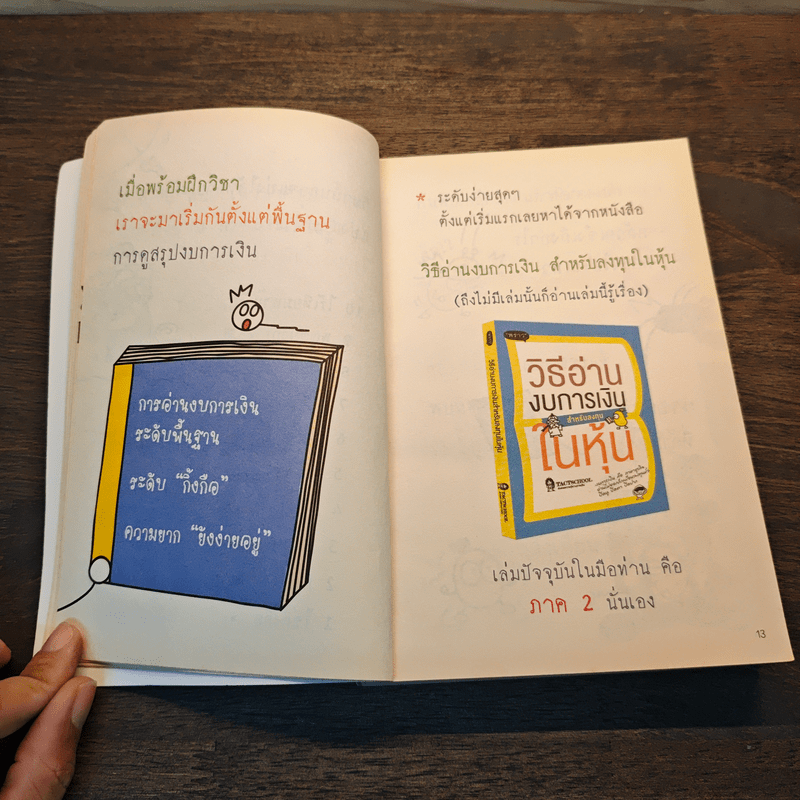 เมื่อพร้อมฝึกวิชา
เราจะมาเริ่มกันตั้งแต่พื้นฐาน
การดูสรุปงบการเงิน
การอ่านงบการเงิน
ระดับพื้นฐาน
ระดับ "กิ้งกือ"
ความยาก "ยังง่ายอยู่"
* ระดับง่ายสุดๆ
ตั้งแต่เริ่มแรกเลยหาได้จากหนังสือ
วิธีอ่านงบการเงิน สำหรับลงทุนในหุ้น
(ถึงไม่มีเล่มนั้นก็อ่านเล่มนี้รู้เรื่อง)
วิธีอ่านงบการเงินสำหรับลงทุนในหุ้น
วิธีอ่าน
งบการเงิน
สำหรับลงทุน
ในหุ้น
TACTSCHOOL
เล่มปัจจุบันในมือท่าน คือ
ภาค 2 นั่นเอง
13